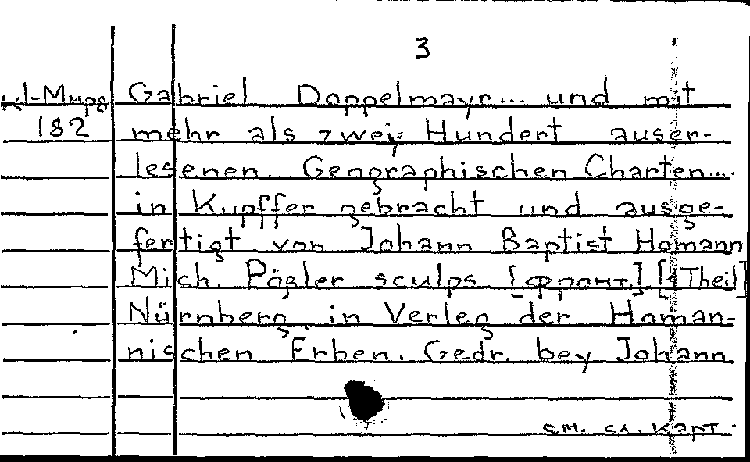 3
Gabriel Doppelmayr... und mit
182 mehr als zwei Hundert auser-
lesenen Geographischen Charten...
in Kupffer gebracht und ausge-
fertigt von Johann Baptist Homann
Mich. Rögler sculps [фронт.] [1 Theil]
Nürnberg, in Verleg der Homan-
nischen Erben. Gedr. bey Johann
см. сл. карт.